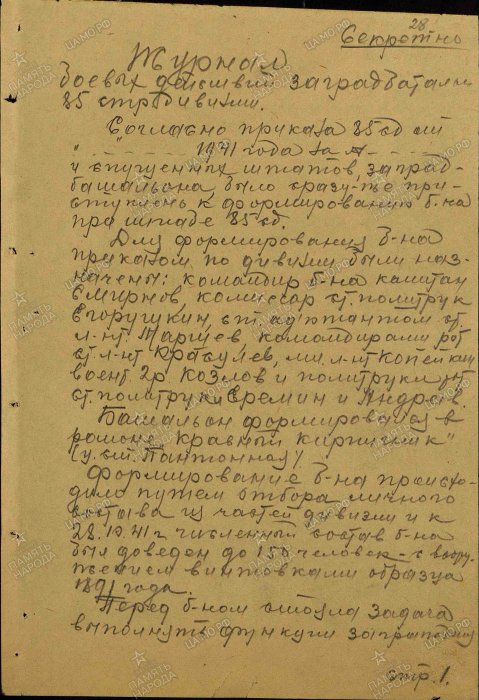 28
Секретно
Журнал
боевых действий заградбаталио
85 стр дивизии.
Согласно приказа 85 сд от
" 1941 года за №
и спущенных штатов, заград-
батальона было сразу-же при-
ступлено к формированию б-на
при штабе 85 сд.
Для формирования б-на
приказом по дивизии были наз-
начены: командир б-на капитан
Смирнов, комиссар ст. политрук
Егорушкин, ст. адъютантом ст.
л-нт Марцев, командирами рот
ст. л-нт Кравулев, мл. л-нт
воент. 2р. Козлов и политруки рот
ст. политруки Еремин и
Батальон формировался в
районе "Красный Кирпичник"
(у ст. Понтонная).
Формирование б-на происхо-
дило путем отбора личного
состава из частей дивизии и к
28.10.41 г численный состав б-на
был доведен до 150 человек - с воору-
жением винтовками образца
1891 года.
Перед б-ном стояла задача
выполнять функции
стр. 1.
ПАМЯТЬ НАРОДА
ЦАМО.РФ